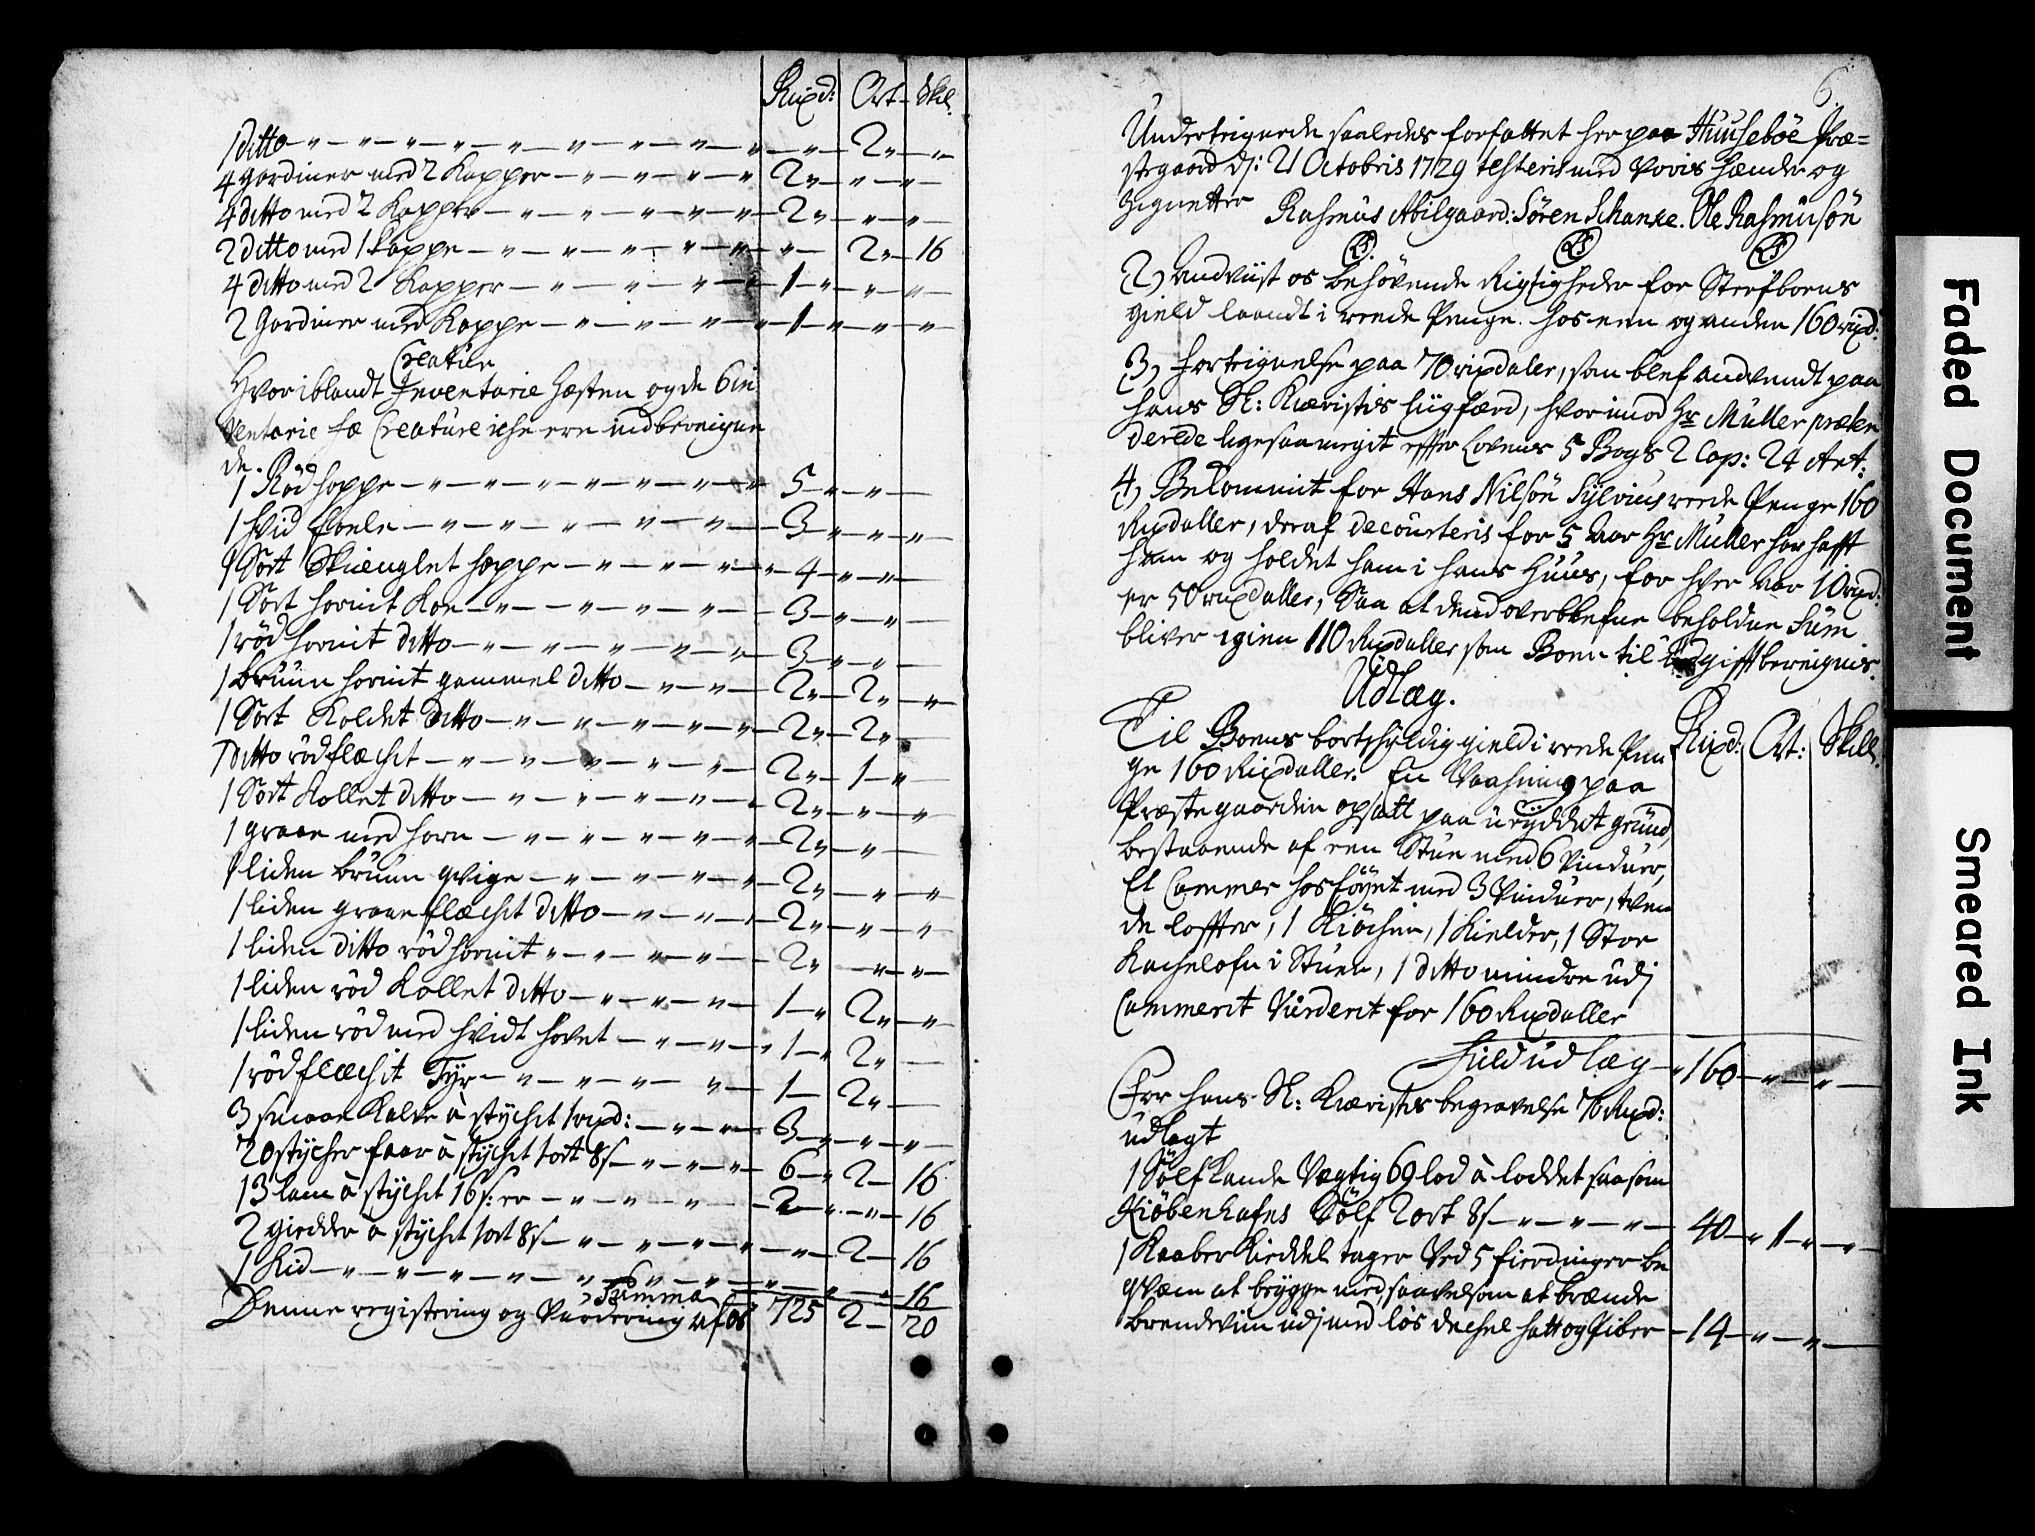 Rixd: Ort Skil.
1 ditto — 2 —
4 gardiner med 2 Kapper — 2 — —
4 ditto med 2 Kapper — 2 — —
2 ditto med 1 Kappe — — 2 — 16
4 ditto med 2 Kapper — 1 — —
2 Gardiner med Kappe — 1 — —
Creatur
Hvor iblandt Inventarie Hæsten og de 6 in
ventarie fæ Creature iche ere indbereigne
de.
1 Rød hoppe — 5 — —
1 hvid foele — 3 — —
1 Sort Skiæuglet hoppe — 4 — —
1 Sort hornit Koe — 3 — —
1 rød hornit ditto — 3 — —
1 bruun hornit gammel ditto — 2 — 2 —
1 Sort Koldet ditto — 2 — 2 —
1 ditto rødflæchit — 2 — 1 —
1 Sort Kollet ditto — 2 — —
1 graae med horn — 2 — —
1 liden bruun qvige — 2 — —
1 liden graaeflæchit ditto — 2 — —
1 liden ditto rød hornit — 2 — —
1 liden rød Kollet ditto — 1 — 2 —
1 liden rød med hvidt hovet — 1 — 2 —
1 rødflæchit Tyr — 1 — 2 —
3 smaae Kalve à stychet 1 rixd: — 3 — —
20 stycher faar à stychet 1 ort 8 s — 6 — 2 — 16
13 lam à stychet 16 s: er — 2 — — 16
2 giedder à stychet 1 ort 8 s — — 2 — 16
1 Kid — — — 16
Summa 725 2 — 20
Denne registering og Vurdering af os
6
Underteignede saaledes forfattet her paa Huusebøe Præ=
stegaard dj: 21 Octobris 1729 testeris med voris hænder og
Zignetter Rasmus Abilgaard: Søren Schanke. Ole Rasmusøn
2, andviist os behøvende Rigtigheder for Sterfboens
gield laandt i reede Penge hos een og anden 160 rixd:
3, forteignelse paa 70 rixdaler, som blef andvendt paa
hans Sl: Kieristes liigfærd, hvorimod Hr Müller præten
derede ligesaa megit effter Lovens 5 Bogs 2 Cap: 24 Art:
4, Bekommit for Hans Nilsøn Sylvius reede Penge 160
Rixdaller, deraf decourteris for 5 Aar Hr Müller har hafft
ham og holdet ham i hans Huus, for hver Aar 10 rixd:
er 50 rixdaller, Saa at dend overblefne beholdne Sum
bliver igien 110 Rixdaller som Boen til Udgifft bereignis.
Udlæg.
Rixd: Ort: Skill.
Til Boens bortschyldig gield i reede Pen
ge 160 Rixdaller. En Vaaning paa
Præstegaarden opsatt paa uryddet grund,
bestaaende af een Stue med 6 Vinduer,
Et Cammer hosføyet med 3 Vinduer, tven
de lofter, 1 Kiøchen, 1 Kielder, 1 Stor
Kachelofn i Stuen, 1 ditto mindre udj
Cammerit Vurderit for 160 Rixdaller
fuld udlæg — 160 — —
For hans Sl: Kieristes begravelse 70 Rixd:
udlagt
1 Sølf Kande Vegtig 69 lod à loddet saasom
Kiøbenhafns Sølf 2 ort 8 s — 40 — 1 —
1 Kaaber Kieddel tager Ved 5 fierdinger be
qvæm at brygge med, saavelsom at brænde
brendeviin udj med løs dechel hatt og Piber — 14 — —
Faded Document
Smeared Ink